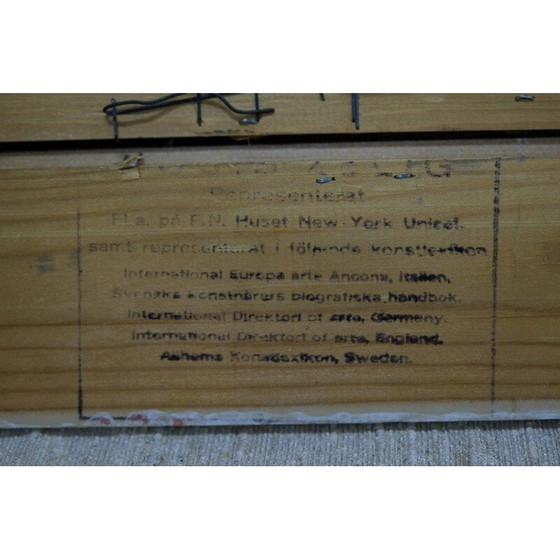 Representerat
Bl.a. på F.N. Huset New York Unicef.
samt representerat i följande konstlexikon
International Europa arte Ancona, Italien.
Svenska konstnärers biografiska handbok.
International Direktori of arte, Germany.
International Direktori of arte, England.
Ashems Konstlexikon, Sweden.